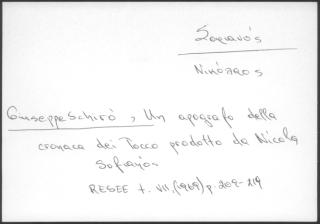 Σοφιανός
Νικόλαος
Giuseppe Schirò, Un apografo della
cronaca dei Tocco prodotto da Nicola
Sofianós
RESEE t. VII, (1969) p. 209-219